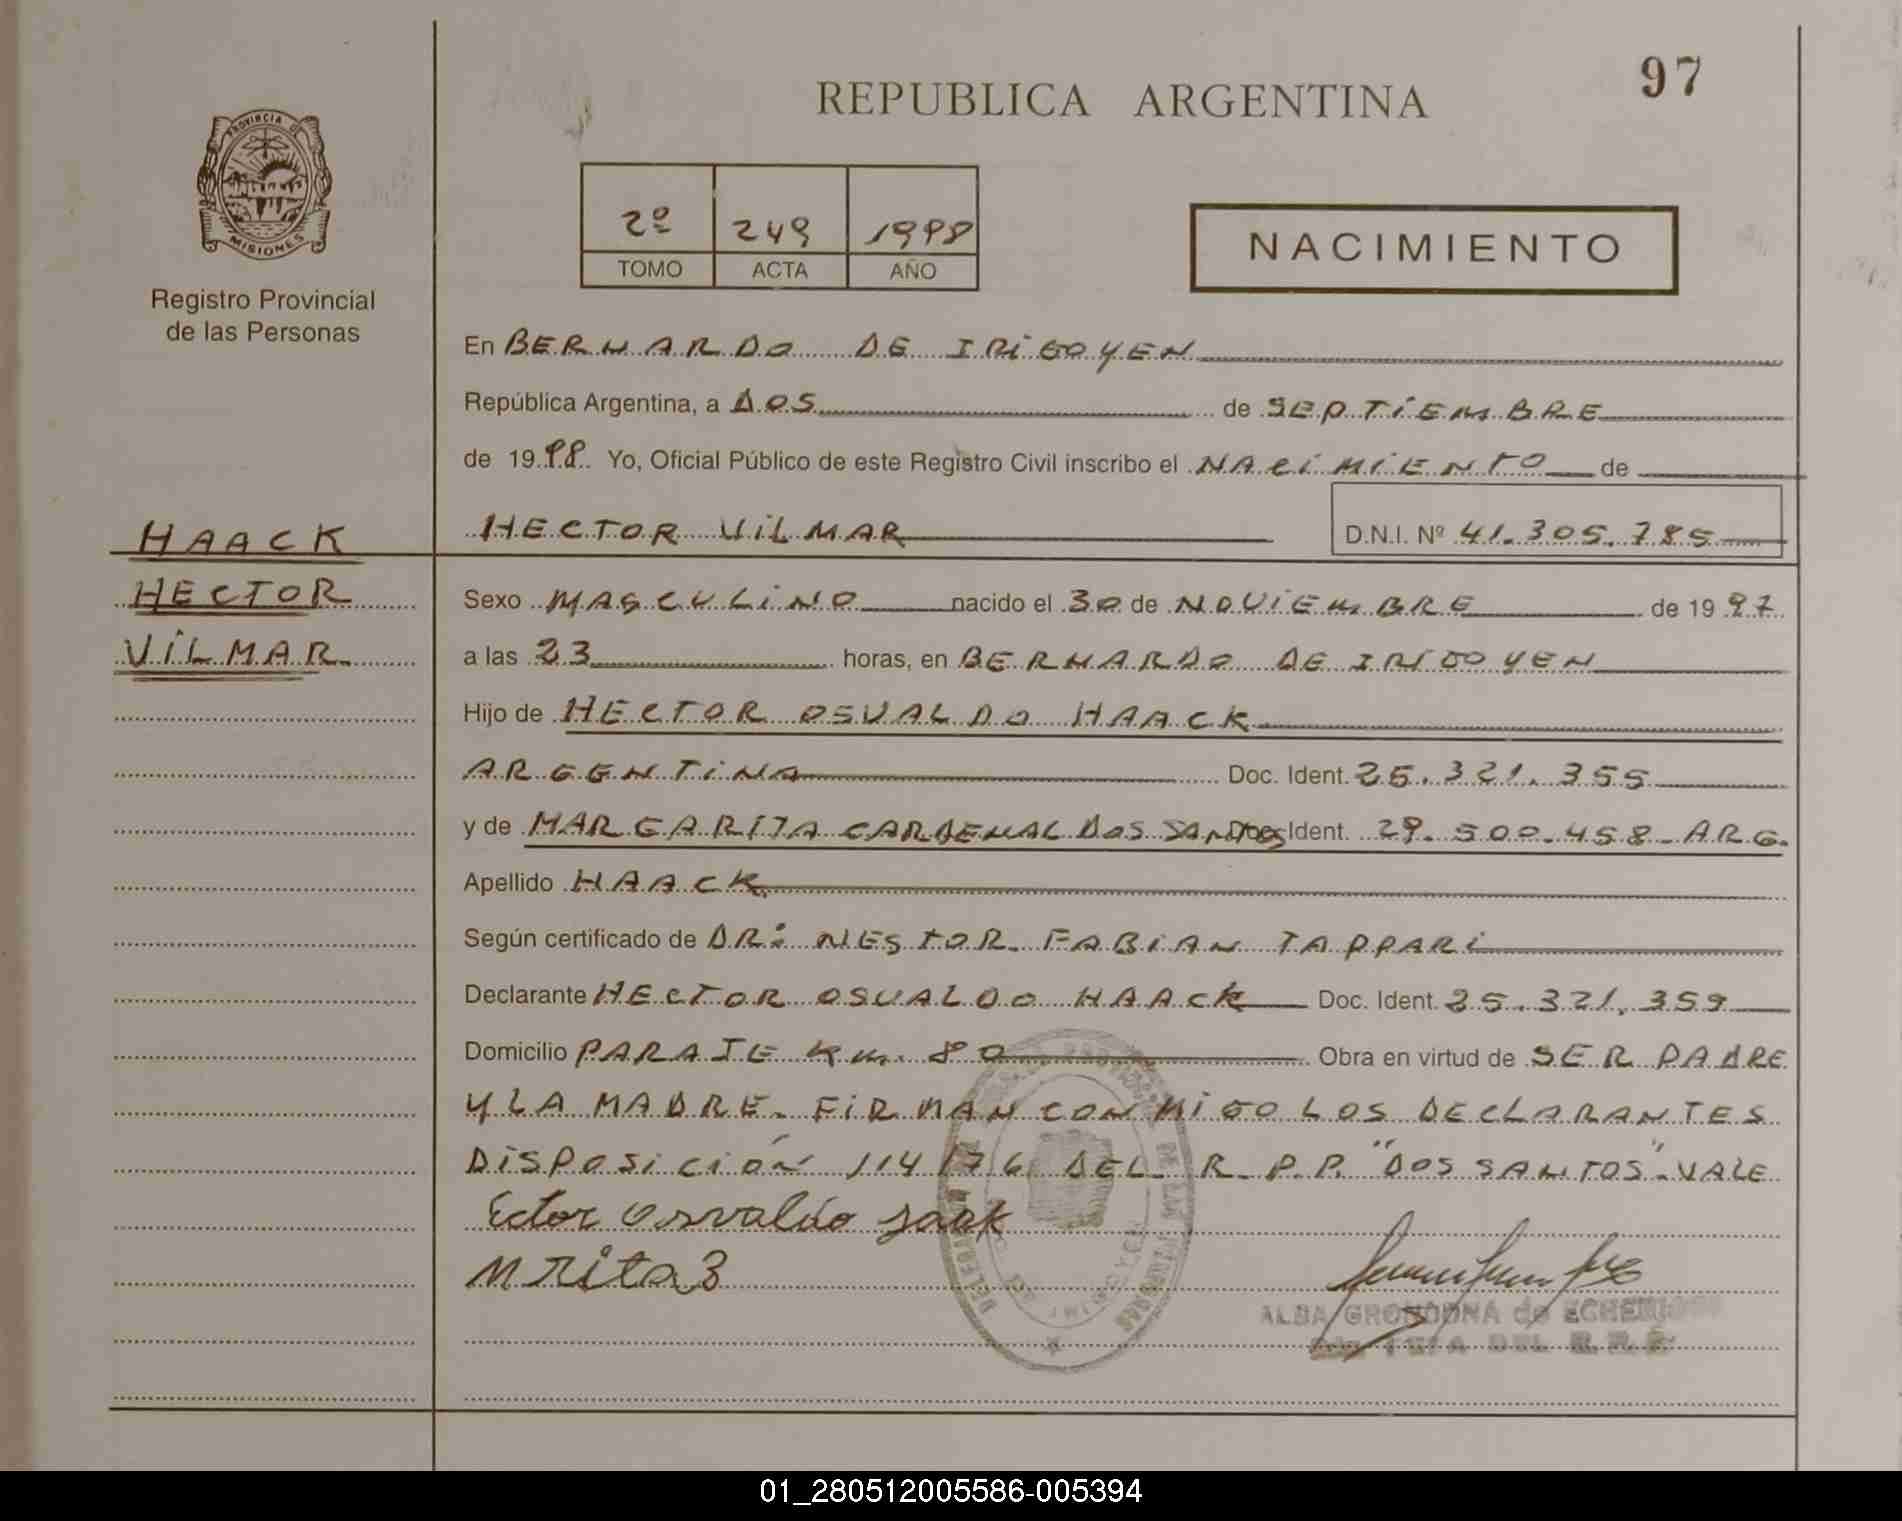 97
REPUBLICA ARGENTINA
PROVINCIA DE
MISIONES
Registro Provincial
de las Personas
2º 249 1998
TOMO ACTA AÑO
NACIMIENTO
En BERNARDO DE IRIGOYEN
República Argentina, a DOS de SEPTIEMBRE
de 1998 Yo, Oficial Público de este Registro Civil inscribo el NACIMIENTO de
HECTOR VILMAR D.N.I. Nº 41.305.785
HAACK
HECTOR
VILMAR.
Sexo MASCULINO nacido el 30 de NOVIEMBRE de 1997
a las 23 horas, en BERNARDO DE IRIGOYEN
Hijo de HECTOR OSVALDO HAACK
ARGENTINA Doc. Ident. 25.321.355
y de MARGARITA CARDENAL DOS SANTOS Doc. Ident. 29.500.458-ARG.
Apellido HAACK
Según certificado de DR: NESTOR FABIAN TAPPARI
Declarante HECTOR OSVALDO HAACK Doc. Ident. 25.321.359
Domicilio PARAJE Km. 80 Obra en virtud de SER PADRE
Y LA MADRE. FIRMAN CONMIGO LOS DECLARANTES
DISPOSICIÓN 114/76 DEL R.P.P. "DOS SANTOS". VALE
Ector Osvaldo Jaak
ALBA GRONDONA de
DEL R.P.P.
01_280512005586-005394